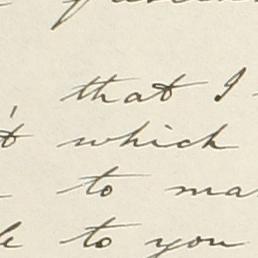 that I
which
to ma
to you